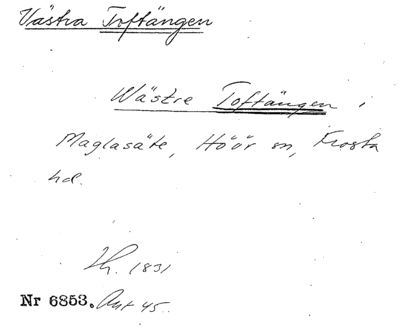 Västra Toftängen
Wästre Toftängen i
Maglasäte, Höör sn, Frosta
hd.
Lh. 1831
Nr 6853. Akt 45.